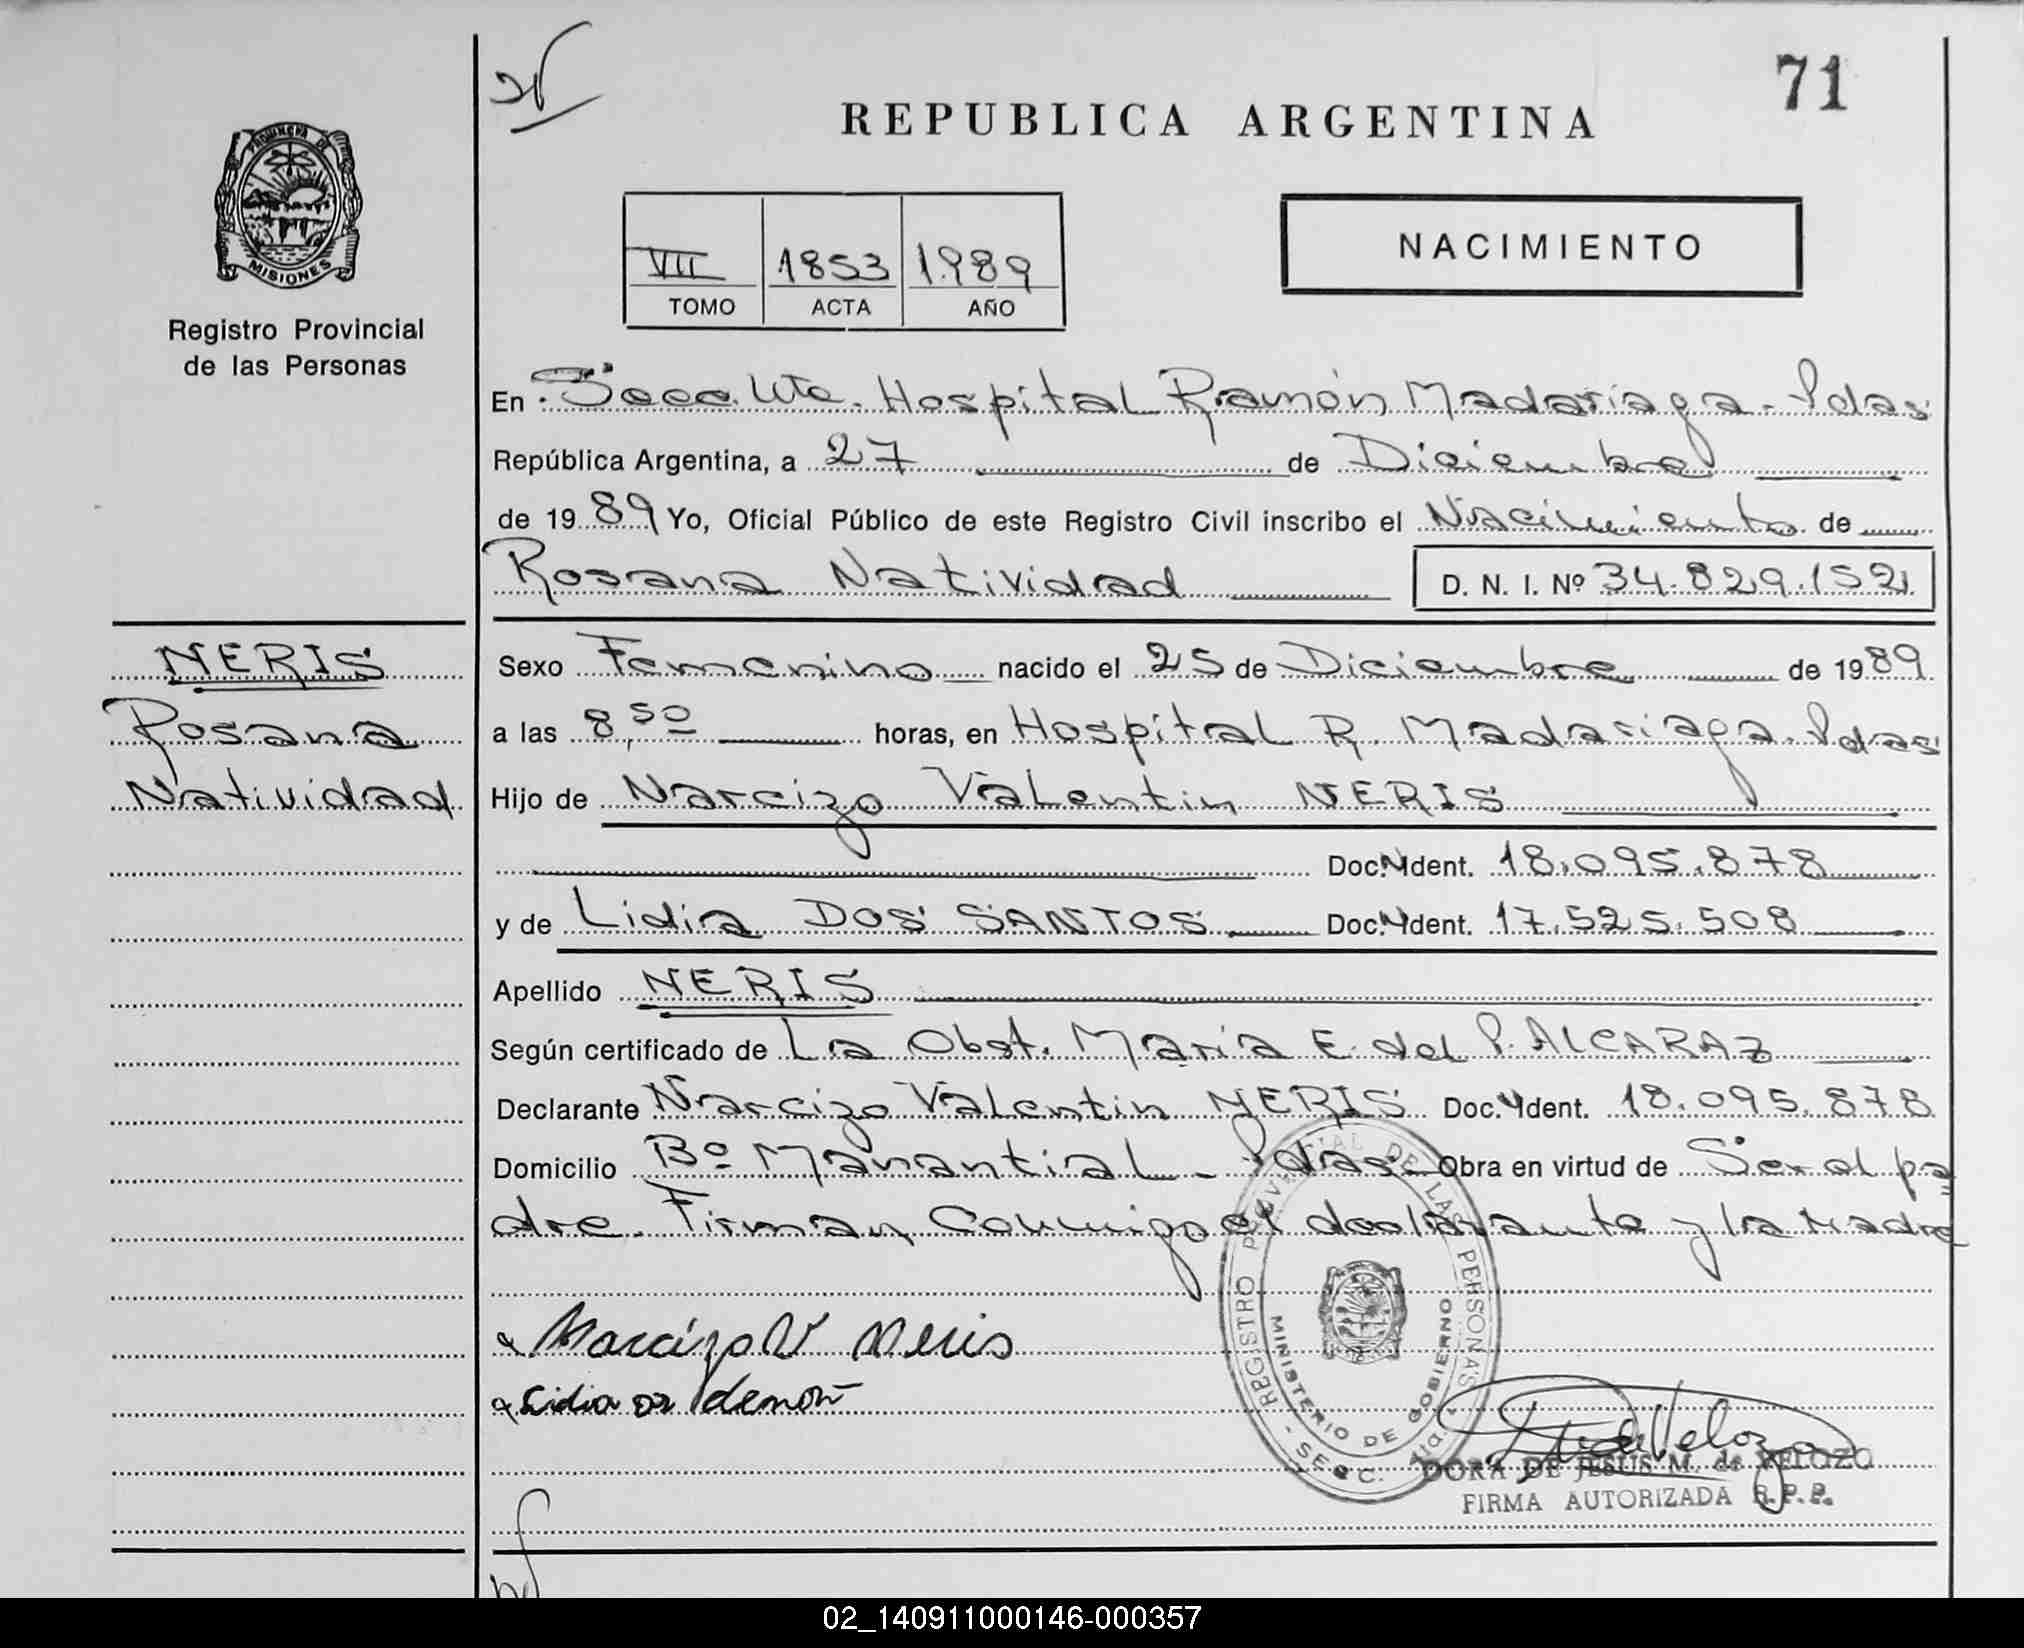 71
REPUBLICA ARGENTINA
PROVINCIA DE
MISIONES
Registro Provincial
de las Personas
VII 1853 1989
TOMO ACTA AÑO
NACIMIENTO
En Secc. Hospital Ramón Madariaga - Pdas
República Argentina, a 27 de Diciembre
de 1989 Yo, Oficial Público de este Registro Civil inscribo el Nacimiento de
Rosana Natividad D. N. I. Nº 34.829.152
NERIS
Rosana
Natividad
Sexo Femenino nacido el 25 de Diciembre de 1989
a las 8,50 horas, en Hospital R. Madariaga. Pdas
Hijo de Narcizo Valentin NERIS
Doc. Ident. 18.095.878
y de Lidia DOS SANTOS Doc. Ident. 17.525.508
Apellido NERIS
Según certificado de La Obst. María E. del P. ALCARAZ
Declarante Narcizo Valentin NERIS Doc. Ident. 18.095.878
Domicilio Bº Manantial - Pdas - Obra en virtud de Ser el pa
dre. Firman Conmigo el declarante y la Madre
Narcizo V Neris
Lidia
REGISTRO PROVINCIAL DE LAS PERSONAS
MINISTERIO DE GOBIERNO
de Velozo
DORA DE JESUS M. de VELOZO
FIRMA AUTORIZADA R.P.P.
02_140911000146-000357